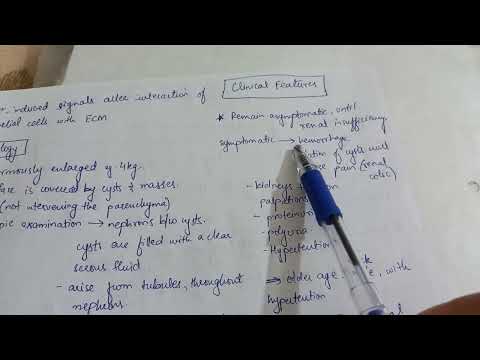 induced signals alter interaction of
elial cells with ECM
logy
rmously enlarged eg. 4kg.
face is covered by cysts & masses.
(not intervening the parenchyma)
pic examination → nephrons b/w cysts.
cysts are filled with a clear
serous fluid
- arise from tubules, throughout
nephrons
Clinical Features
* Remain asymptomatic, until
renal insufficiency
symptomatic → hemorrhage
of cysts
pain (renal
colic)
- kidneys
palpation
- protein
- polyuria
- Hypertention
⇒ older age,
with
hypertention